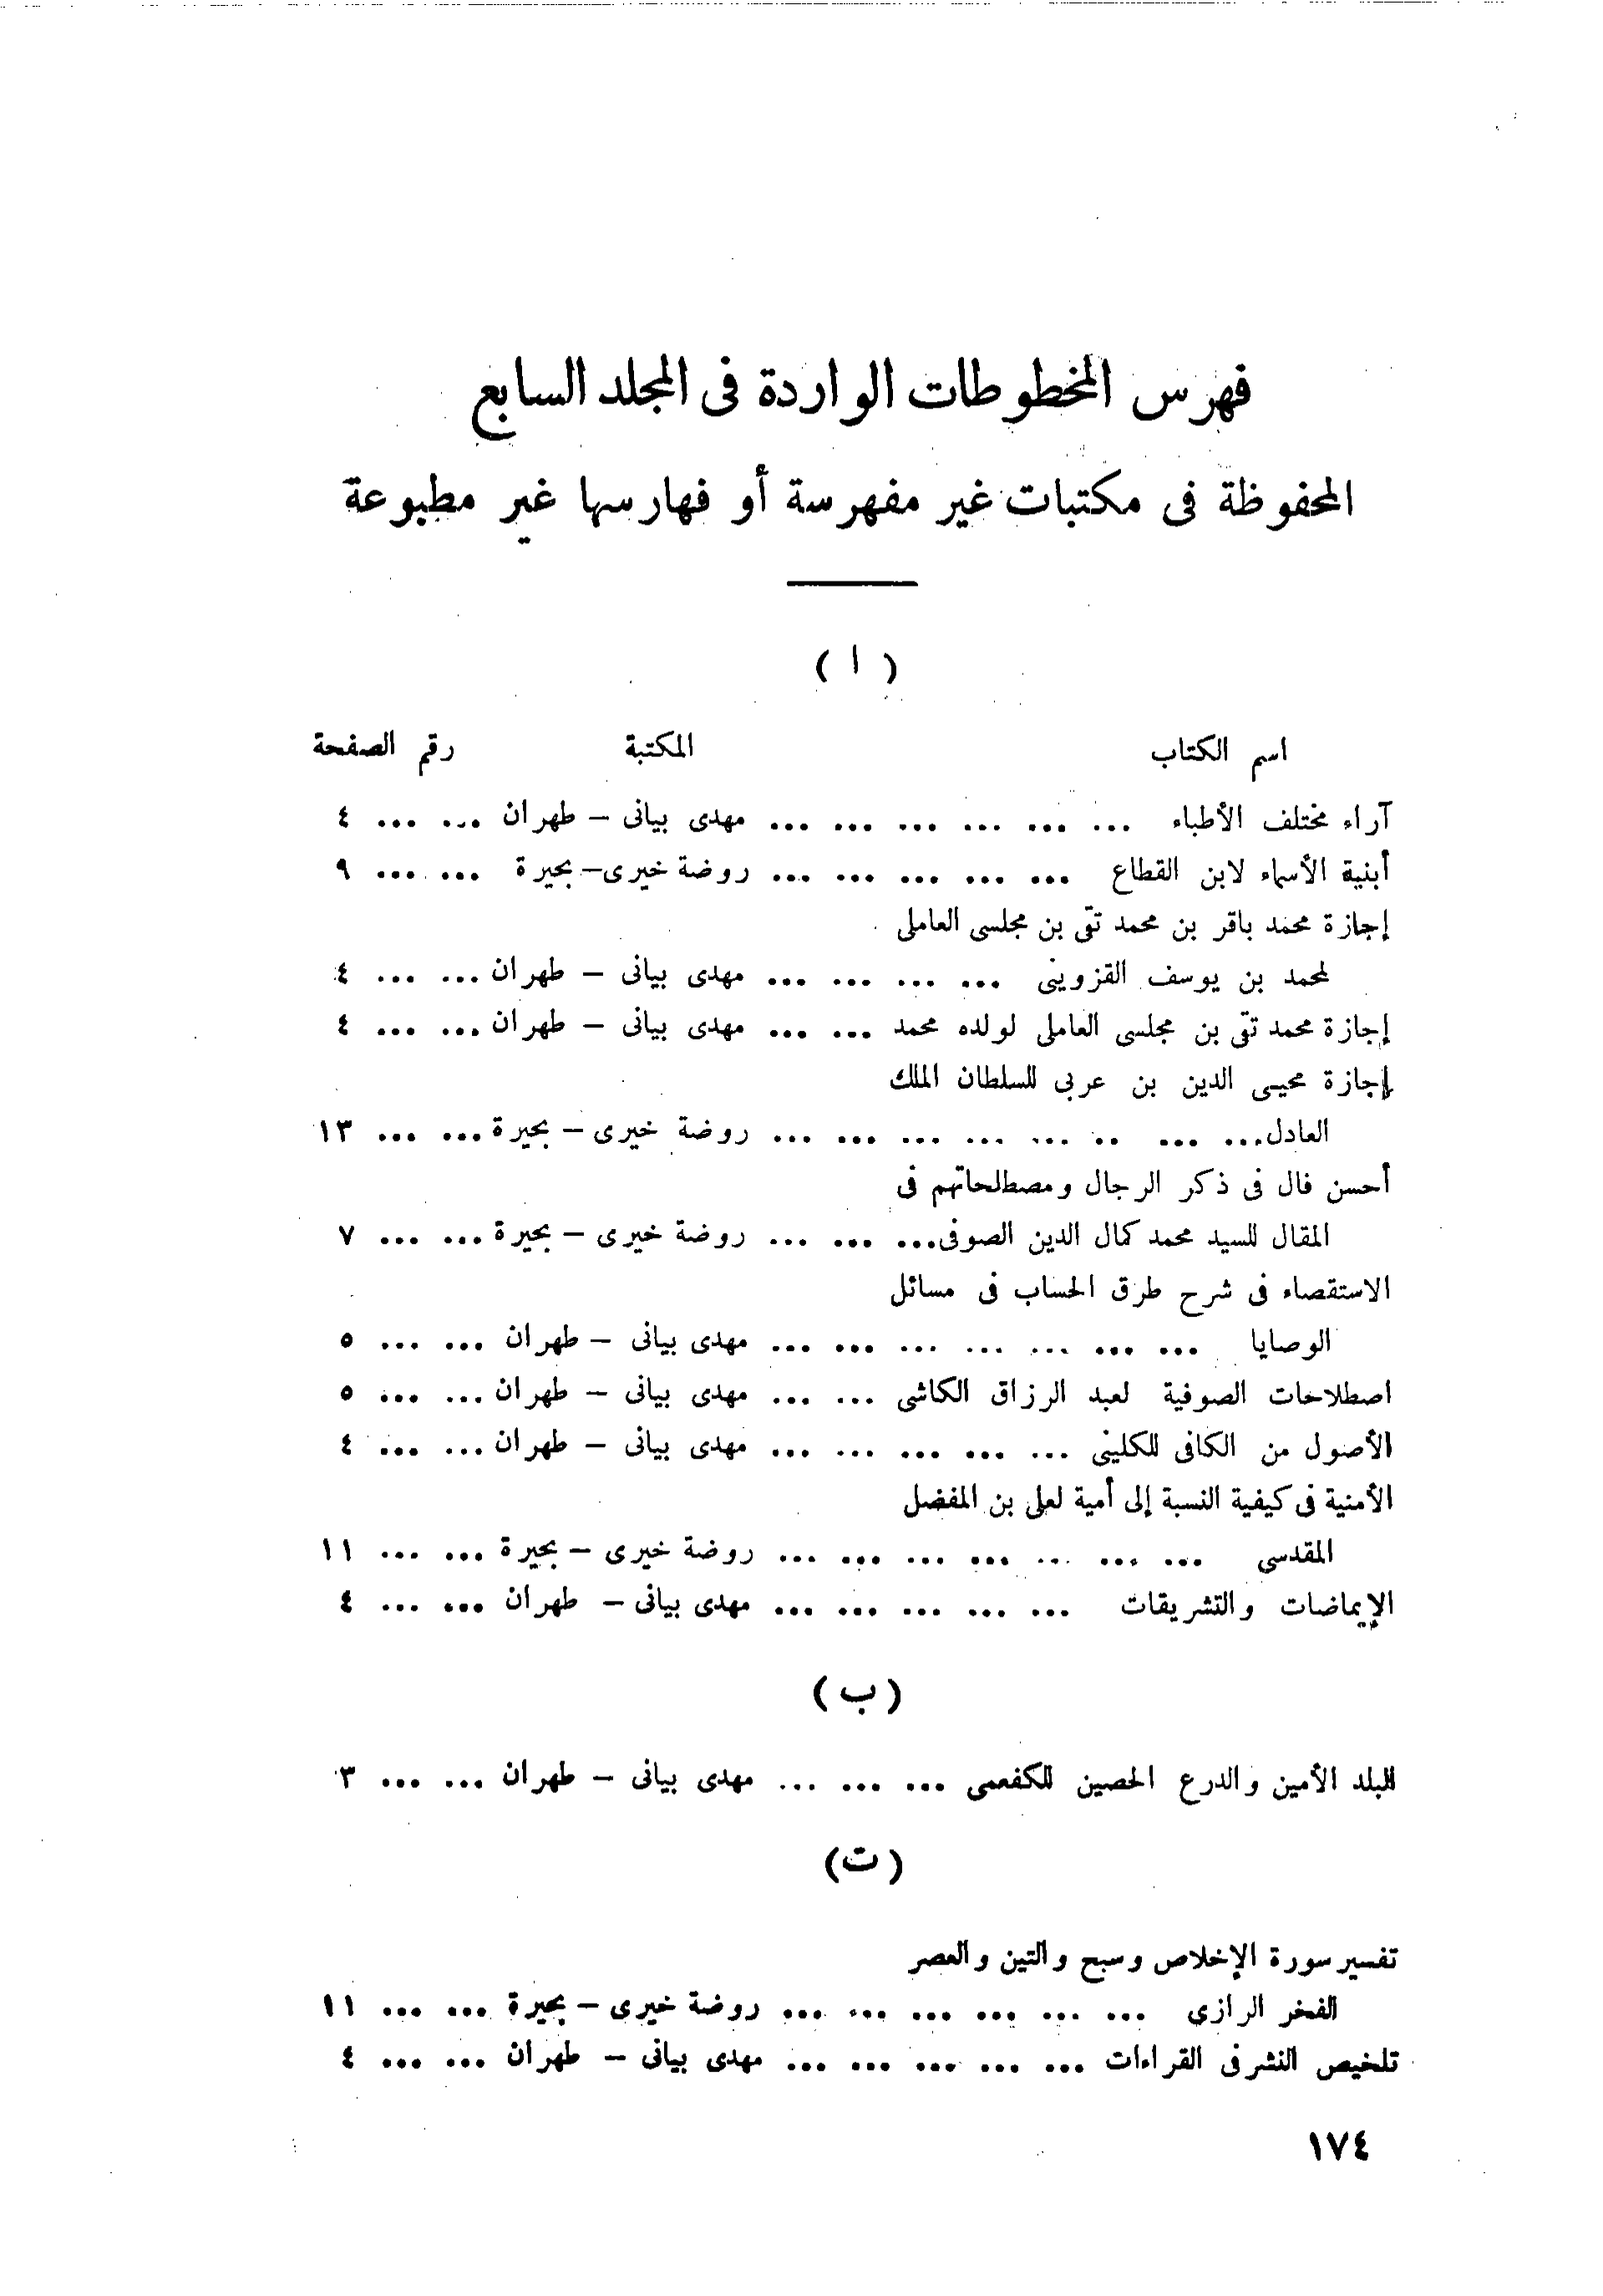 فهرس المخطوطات الواردة فى المجلد السابع
المحفوظة فى مكتبات غير مفهرسة أو فهارسها غير مطبوعة
( ا )
اسم الكتاب المكتبة رقم الصفحة
آراء مختلف الأطباء ... ... ... ... ... ... مهدى بيانى – طهران ... ... ٤
أبنية الأسماء لابن القطاع ... ... ... ... ... روضة خيرى – بحيرة ... ... ٩
إجازة محمد باقر بن محمد تقى بن مجلسى العاملى
لمحمد بن يوسف القزوينى ... ... ... ... مهدى بيانى – طهران ... ... ٤
إجازة محمد تقى بن مجلسى العاملى لولده محمد ... ... مهدى بيانى – طهران ... ... ٤
إجازة محيى الدين بن عربى للسلطان الملك
العادل ... ... ... ... ... ... ... ... روضة خيرى – بحيرة ... ... ١٣
أحسن فال فى ذكر الرجال ومصطلحاتهم فى
المقال للسيد محمد كمال الدين الصوفى ... ... ... روضة خيرى – بحيرة ... ... ٧
الاستقصاء فى شرح طرق الحساب فى مسائل
الوصايا ... ... ... ... ... ... ... مهدى بيانى – طهران ... ... ٥
اصطلاحات الصوفية لعبد الرزاق الكاشى ... ... مهدى بيانى – طهران ... ... ٥
الأصول من الكافى للكلينى ... ... ... ... ... مهدى بيانى – طهران ... ... ٤
الأمنية فى كيفية النسبة إلى أمية لعلى بن المفضل
المقدسى ... ... ... ... ... ... ... روضة خيرى – بحيرة ... ... ١١
الإيماضات والتشريقات ... ... ... ... ... مهدى بيانى – طهران ... ... ٤
( ب )
البلد الأمين والدرع الحصين للكفعمى ... ... ... مهدى بيانى – طهران ... ... ٣
( ت )
تفسير سورة الإخلاص وسبح والتين والعصر
الفخر الرازى ... ... ... ... ... ... روضة خيرى – بحيرة ... ... ١١
تلخيص النشر فى القراءات ... ... ... ... ... مهدى بيانى – طهران ... ... ٤
١٧٤